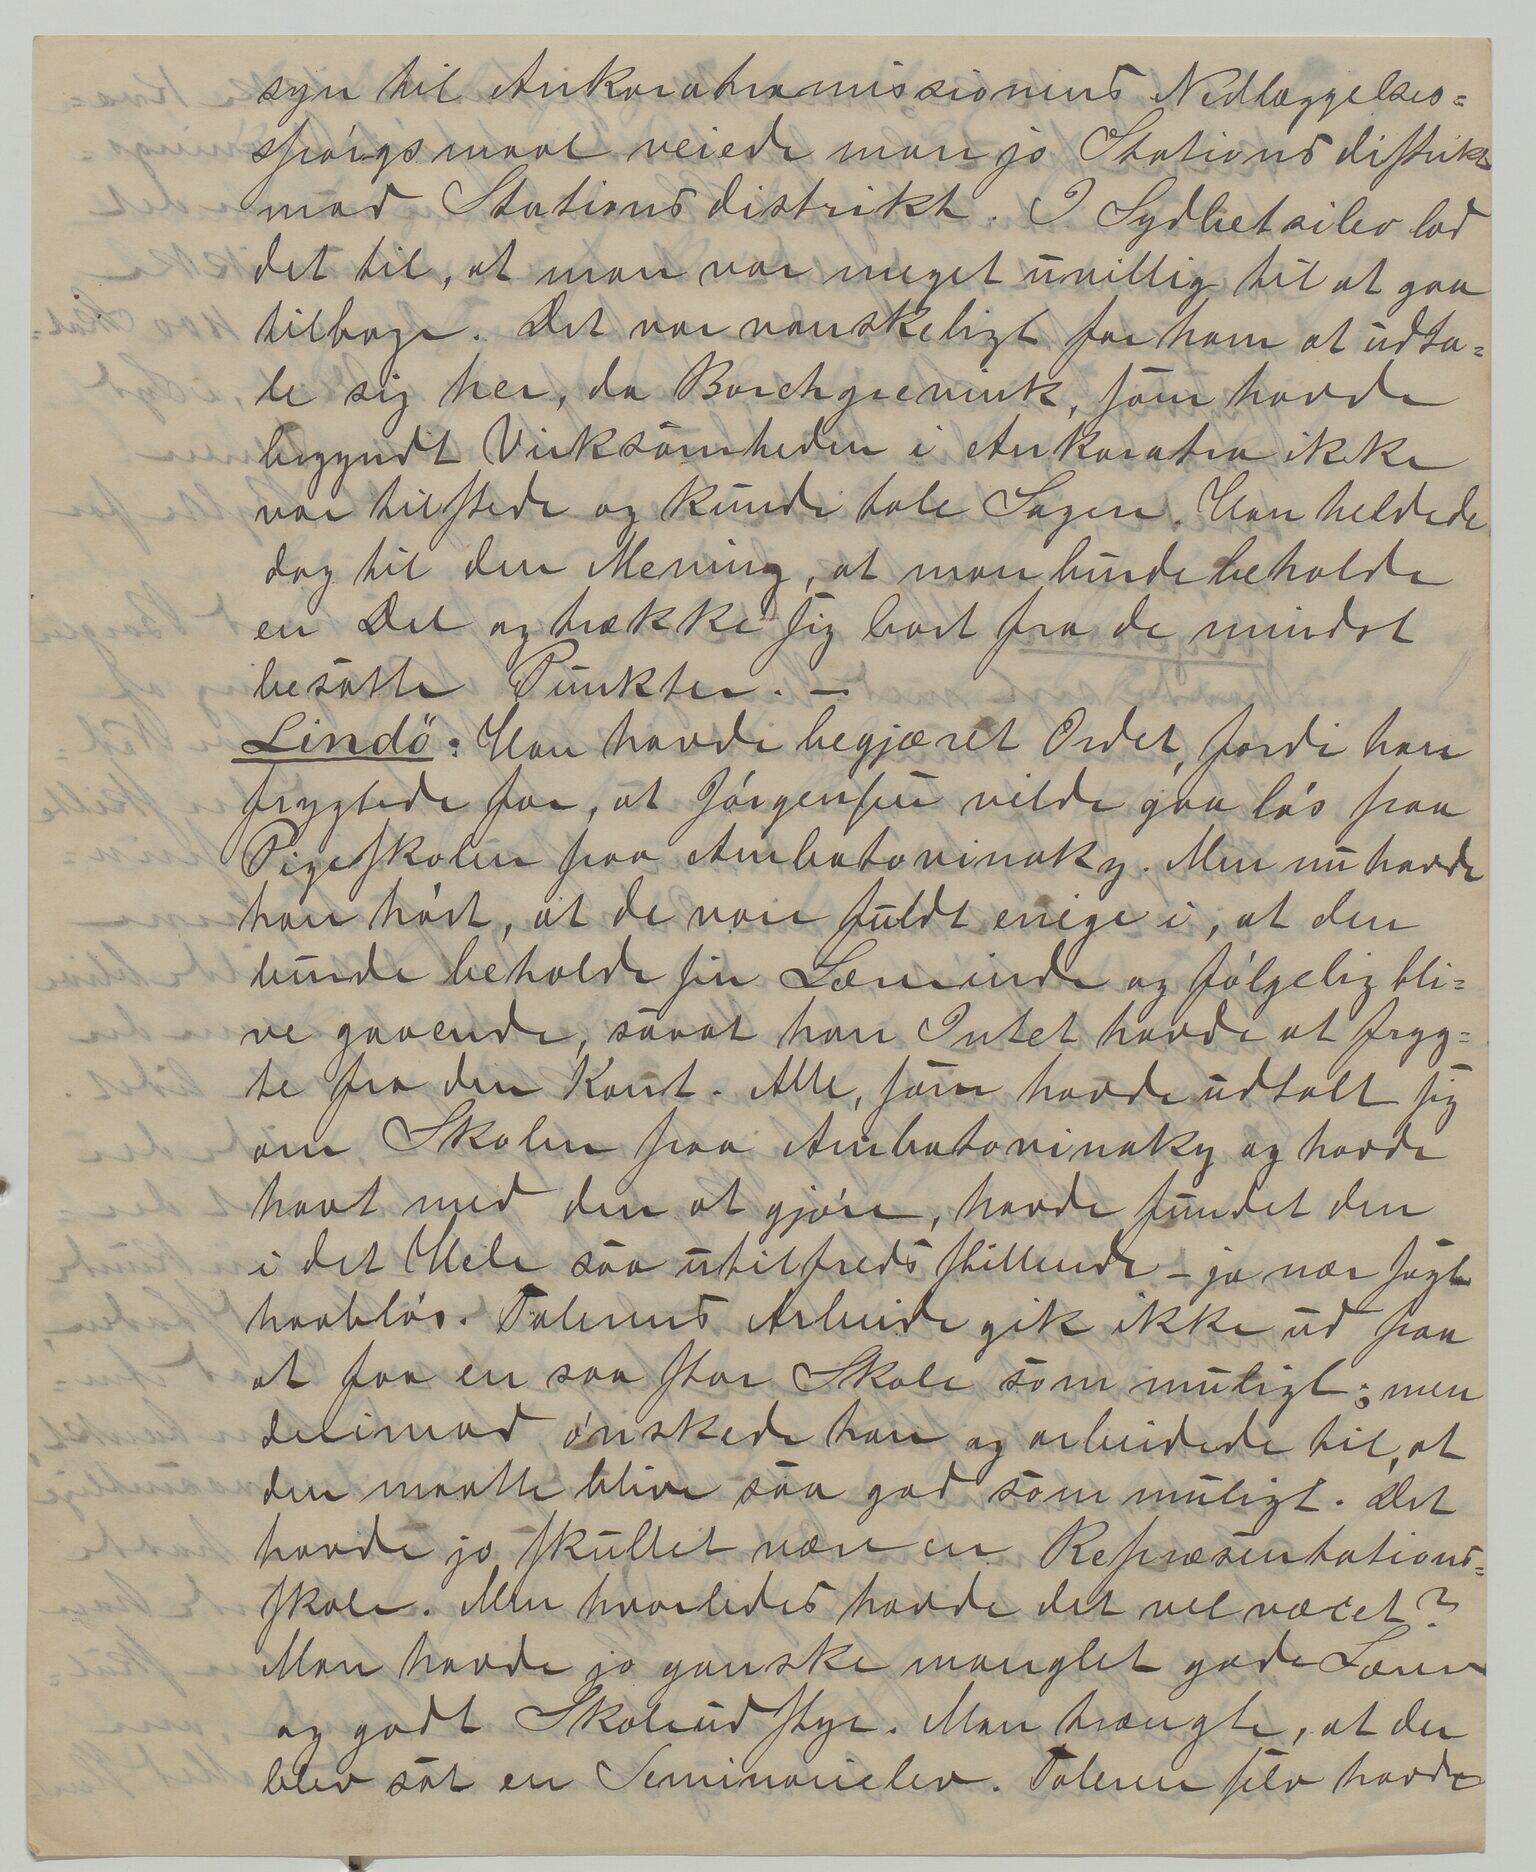 syn til Ankaratramissionens Nedlæggelses=
spørgsmaal veiede man jo Stationsdistrikt
mod Stationsdistrikt. I Sydbetsileo lod
det til, at man var meget uvillig til at gaa
tilbage. Det var vanskeligt for ham at udta=
le sig her, da Borchgrevink, som havde
begyndt Virksomheden i Ankaratra ikke
var tilstede og kunde tale Sagen. Han heldede
dog til den Mening, at man burde beholde
en Del og trække sig bort fra de mindst
besatte Punkter. –
Lindö: Han havde begjæret Ordet, fordi han
frygtede for, at Jørgensen vilde gaa løs paa
Pigeskolen paa Ambatovinaky. Men nu havde
han hørt, at de vare fuldt enige i, at den
burde beholde sin Lærerinde og følgelig bli=
ve gaaende, saaat han Intet havde at fryg=
te fra den Kant. Alle, som havde udtalt sig
om Skolen paa Ambatovinaky og havde
havt med den at gjøre, havde fundet den
i det Hele saa utilfredsstillende – ja nær sagt
haabløs. Talerens Arbeide gik ikke ud paa
at faa en saa stor Skole som muligt; men
derimod ønskede han og arbeidede til, at
den maatte blive saa god som muligt. Det
havde jo skullet være en Repræsentations=
skole. Men hvorledes havde det vel været?
Man havde jo ganske manglet gode Lærer
og godt Skoleudstyr. Man trængte, at der
blev sat en Seminarielev. Taleren selv havde